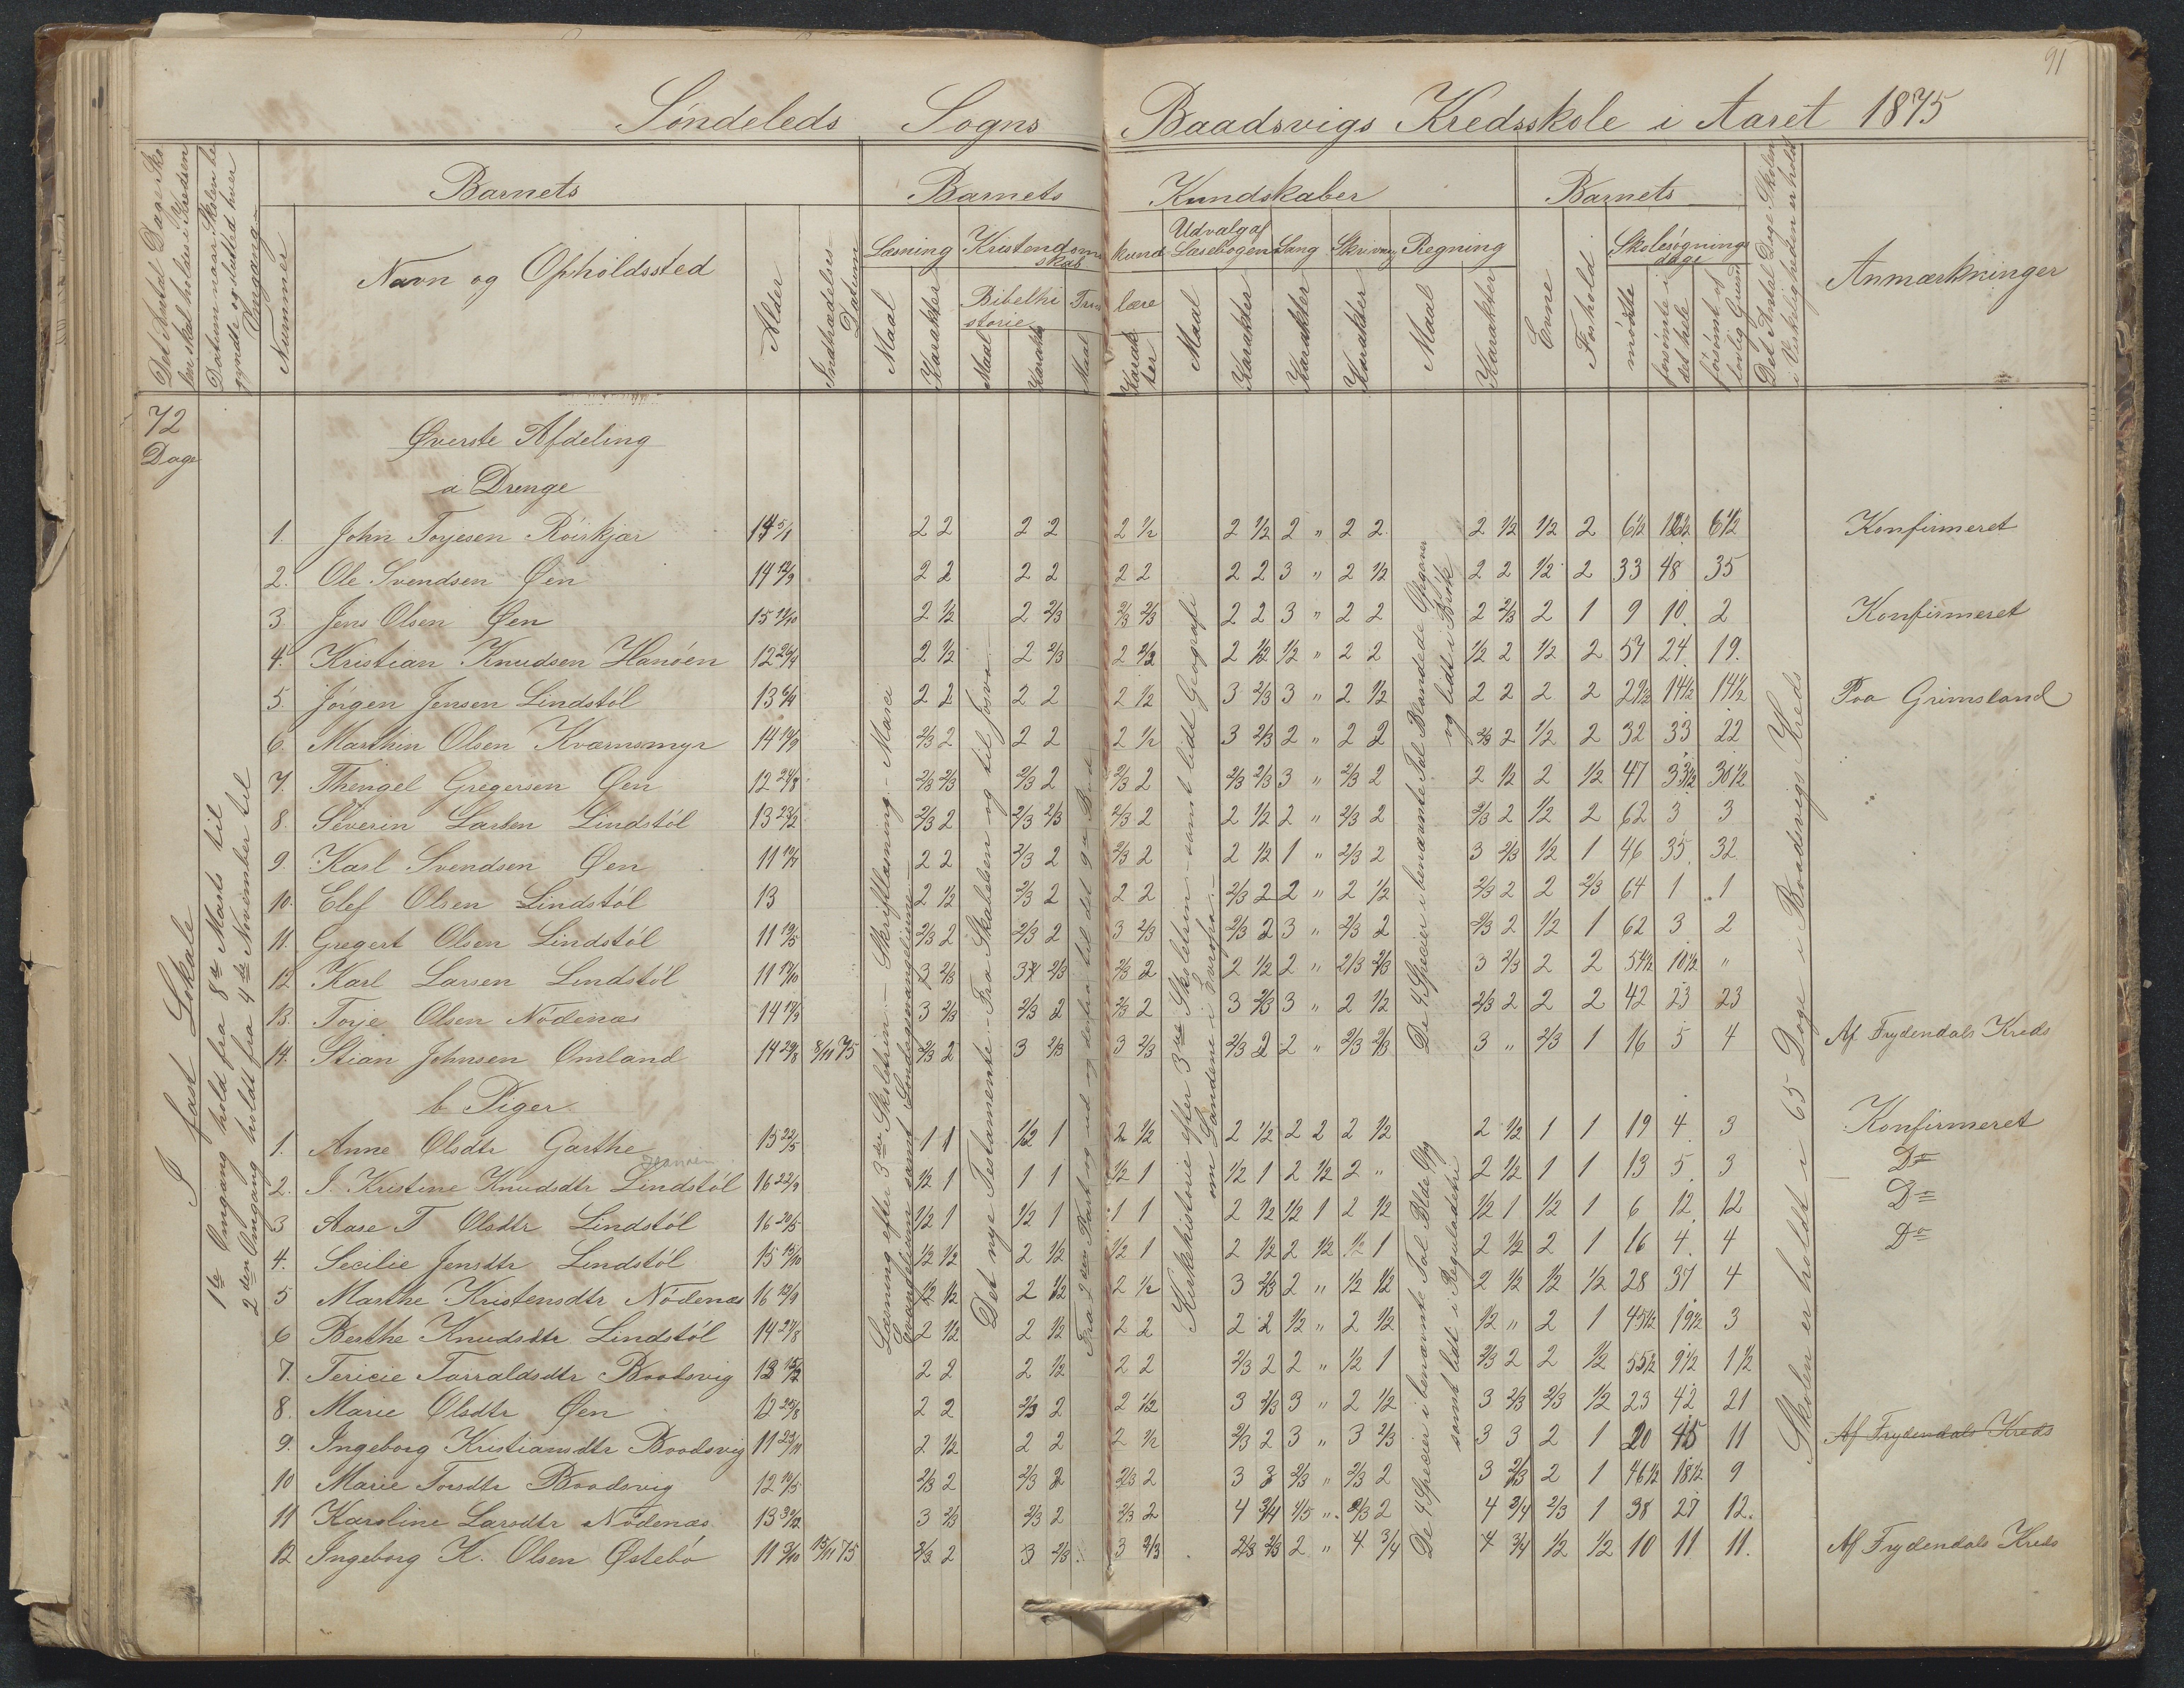 91
Søndeleds Sogns Baadsvigs Kredsskole i Aaret 1875
Det Antal Dage Skolen skal holdes i Kredsen
Datum naar Skolen begynde og slutted hver Omgang
Barnets
Nummer
Navn og Opholdssted
Alter
Indtrædelses Datum
Barnets Kundskaber
Læsning
Maal
Karakter
Kristendomskundskab
Bibelhistorie
Maal
Karakter
Troeslære
Maal
Karakter
Udvalg af Læsebogen
Maal
Karakter
Sang
Karakter
Skrivning
Karakter
Regning
Maal
Karakter
Barnets
Evne
Forhold
Skolesøgningsdage
mødte
forsømte i det hele
forsømt af lovlig Grund
Det Antal Dage Skolen i Virkeligheden er holdt
Anmærkninger
72
Dage
I fast Lokale
1ste Omgang hold fra 8de Marts til
2den Omgang holdt fra 4de November til
Øverste Afdeling
a Drenge
1. John Torjesen Röirkjær 14 5/1 2 2 2 2 2 1/2 2 1/2 2 " 2 2 2 1/2 1/2 2 6 1/2 6 1/2 Konfirmeret
2. Ole Svendsen Øen 14 12/9 2 2 2 2 2 2 2 2 3 " 2 1/2 2 2 1/2 2 33 48 35
3. Jens Olsen Øen 15 2 1/2 2 2/3 2/3 2/3 2 2 3 " 2 2 2 2/3 2 1 9 10 2 Konfirmeret
4. Kristian Knudsen Hanöen 12 26/4 2 1/2 2 2/3 2 2/3 2 1/2 1/2 " 2 2 1/2 2 1/2 2 57 24 19
5. Jörgen Jensen Lindstöl 13 2 2 2 2 2 1/2 3 2/3 3 " 2 1/2 2 2 2 2 29 1/2 14 1/2 14 1/2 Paa Grimsland
6. Marthin Olsen Kværnsmyr 14 19/9 2/3 2 2 2 2 1/2 3 2/3 2 " 2 2 2/3 2 1/2 2 32 33 22
7. Thengel Gregersen Øen 12 24/8 2/3 2/3 2/3 2 2/3 2 2/3 2/3 3 " 2/3 2 2 1/2 2 1/2 47 33 1/2 30 1/2
8. Severin Larsen Lindstöl 13 23/2 2/3 2 2/3 2/3 2/3 2 2 1/2 2 " 2/3 2 2/3 2 1/2 2 62 3 3
9. Karl Svendsen Øen 11 2 2 2/3 2 2/3 2 2 1/2 1 " 2/3 2 3 2/3 1/2 1 46 35 32
10. Elef Olsen Lindstöl 13 2 1/2 2/3 2 2 2 2/3 2 2 " 2 1/2 2/3 2 2 2/3 64 1 1
11. Gregert Olsen Lindstöl 11 19/5 2/3 2 2/3 2 3 2/3 2/3 2 3 " 2/3 2 2/3 2 1/2 1 62 3 2
12. Karl Larsen Lindstöl 11 3 2/3 3 2/3 2/3 2 2 1/2 2 " 2/3 2/3 3 2/3 2 2 54 1/2 10 1/2 "
13. Torje Olsen Nödenæs 14 3 2/3 2/3 2 2/3 2 3 2/3 3 " 2 1/2 2/3 2 2 2 42 23 23
14. Stian Johnsen Omland 14 29/8 8/11 75 2/3 2 3 2/3 3 2/3 2/3 2 2 " 2/3 2/3 3 " 2/3 1 16 5 4 Af Frydendals Kreds
b Piger
1. Anne Olsdtr Garthe 15 22/5 1 1 1/2 1 2 1/2 2 1/2 2 2 2 1/2 2 1/2 1 1 19 4 3 Konfirmeret
2. J. Kristine Knudsdtr Lindstöl 16 22/9 1/2 1 1 1 1/2 1 1/2 1 2 1/2 2 " 2 1/2 1 1 13 5 3 Do
3 Aase T Olsdtr Lindstöl 16 20/5 1/2 1 1/2 1 1 1 2 1/2 1/2 1 2 1/2 1/2 1 1/2 1 6 12 12 Do
4. Secilie Jensdtr Lindstöl 15 15/10 1/2 1/2 2 1/2 1/2 1 2 1/2 2 1/2 1/2 1 2 1/2 2 1 16 4 4 Do
5 Marthe Kristensdtr Nödenæs 16 1/2 1/2 2 1/2 2 1/2 3 2/3 2 " 1/2 1/2 2 1/2 1/2 1/2 28 37 4
6 Berthe Knudsdtr Lindstöl 14 27/8 2 1/2 2 1/2 2 2 2 2 1/2 " 2 1/2 1/2 " 2 1 45 1/2 19 1/2 3
7. Tericie Tarraldsdtr Baadsvig 13 2 2 2 1/2 2 2 2/3 2 2 " 1/2 1 2/3 2 2 1/2 55 1/2 9 1/2 1 1/2
8. Marie Olsdtr Øen 12 25/8 2 2 2/3 2 2 1/2 3 2/3 3 " 2 1/2 3 2/3 2/3 1/2 23 42 21
9. Ingeborg Kristiansdtr Baadsvig 11 23/11 2 1/2 2 2 2 1/2 2/3 2 3 " 3 2/3 3 3 2 1 20 45 11 Af Frydendals Kreds
10 Marie Torsdtr Baadsvig 12 2/3 2 2/3 2 2/3 2 3 3 2/3 " 2/3 2 3 2/3 2 1 46 1/2 18 1/2 9
11 Karoline Larsdtr Nödenæs 13 30/12 3 2/3 2/3 2 2/3 2 4 3/4 4/5 " 2/3 2 4 3/4 2/3 1 38 27 12.
12 Ingeborg K. Olsen Østebö 11 3/10 15/11 75 2/3 2 3 2/3 3 2/3 2/3 2/3 2 " 4 3/4 4 3/4 1/2 1/2 10 11 11. Af Frydendals Kreds
Læsning efter 3die Skoletrin – Skriftlæsning – Marci
Evangelium samt Søndagsevangelierne –
Det nye Testamente – Fra Skabelsen og til
Fra 2den Part og ud og derfra til det 9de Bud
Kirkehistorie efter 3die Skoletrin – samt lidt Geografi
om Landene i Evropa –
De 4 Specier i benævnte Tal Blandede Opgaver
og lidt i Brök
De 4 Specier i benævnte Tal
samt lidt i Reguladetri
Skolen er holdt i 65 Dage i Baadsvigs Kreds